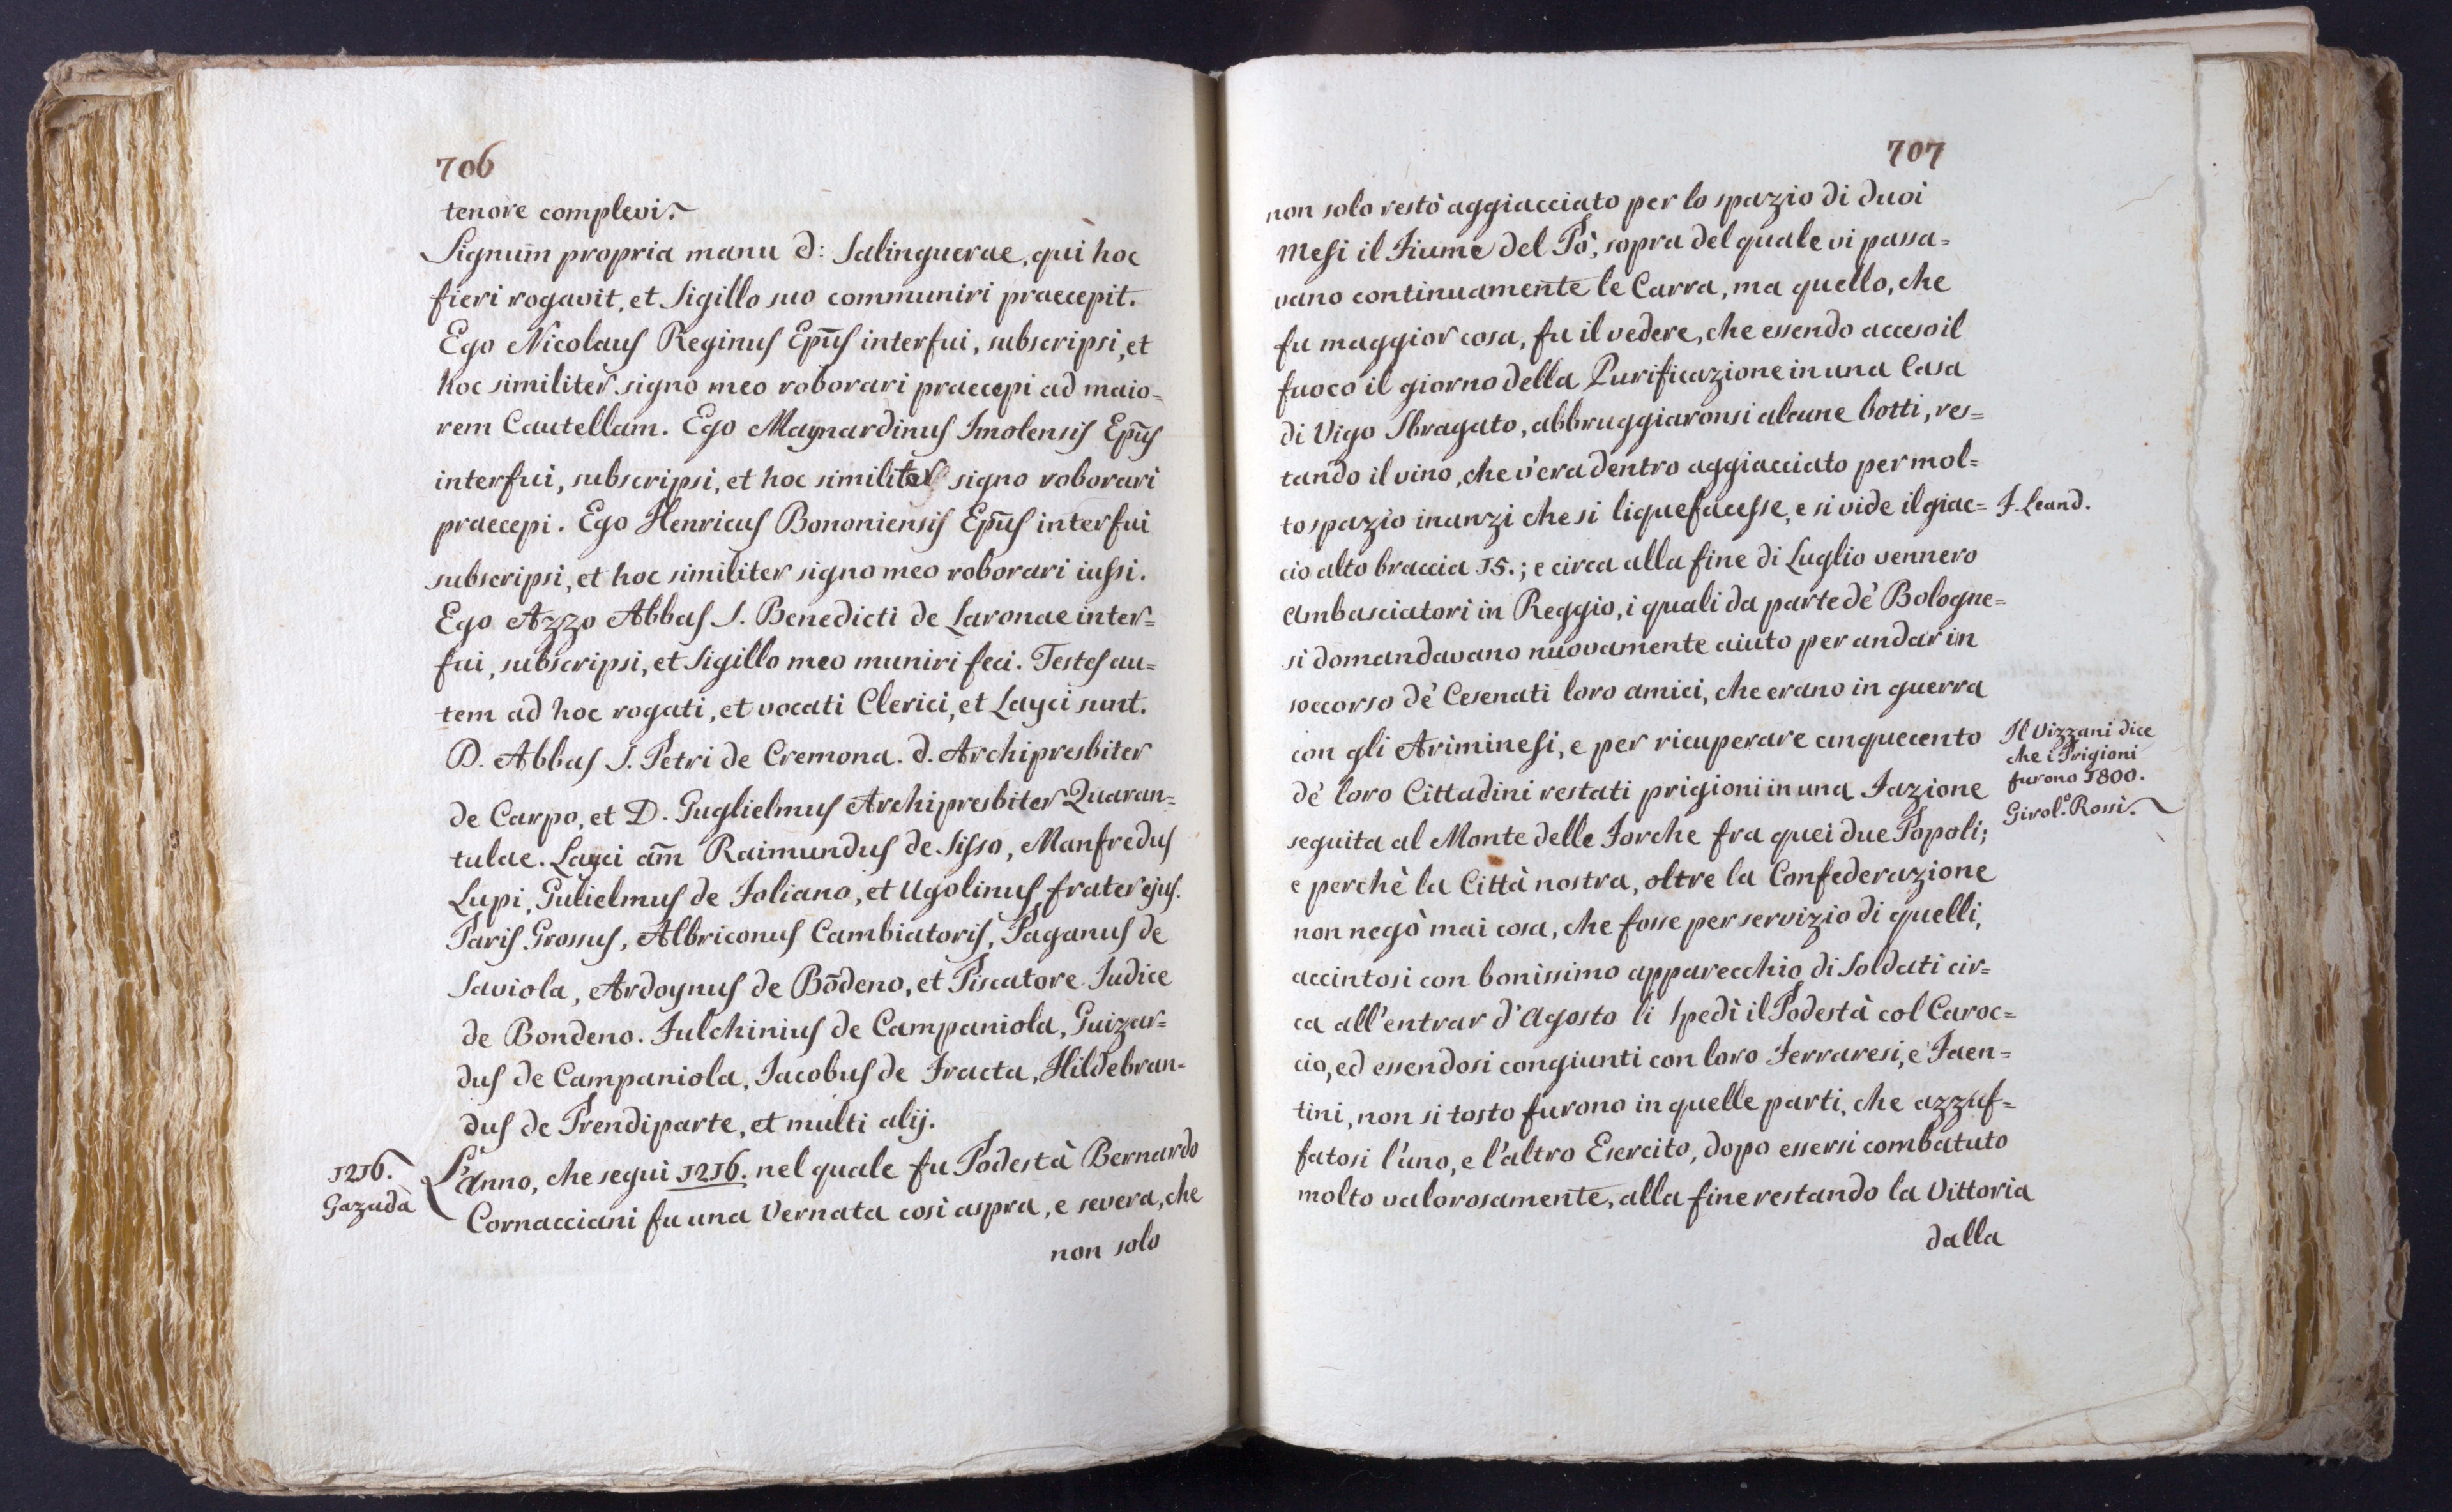 706
tenore complevi.
Signum̄ propria manu d: Salinguerae, qui hoc
fieri rogavit, et Sigillo suo communiri praecepit.
Ego Nicolaus Reginus Ep̄us interfui, subscripsi, et
hoc similiter signo meo roborari praecepi ad maio=
rem Cautellam. Ego Maynardinus Imolensis Ep̄us
interfui, subscripsi, et hoc similiter signo roborari
praecepi. Ego Henricus Bononiensis Ep̄us interfui
subscripsi, et hoc similiter signo meo roborari iussi.
Ego Azzo Abbas S. Benedicti de Laronae inter=
fui, subscripsi, et Sigillo meo muniri feci. Testes au=
tem ad hoc rogati, et vocati Clerici, et Layci sunt.
D. Abbas S. Petri de Cremona. d. Archipresbiter
de Carpo, et D. Guglielmus Archipresbiter Quaran=
tulae. Layci am̄ Raimundus de Sisso, Manfredus
Lupi, Gulielmus de Foliano, et Ugolinus frater ejus.
Paris Grossus, Albriconus Cambiatoris, Paganus de
Saviola, Ardoynus de Bōdeno, et Piscatore Iudice
de Bondeno. Fulchinius de Campaniola, Guizar=
dus de Campaniola, Iacobus de Fracta, Hildebran=
dus de Prendiparte, et multi alij.
1216.
Gazada
L'Anno, che segui 1216. nel quale fu Podestà Bernardo
Cornacciani fu una Vernata così aspra, e severa, che
non solo
707
non solo restò aggiacciato per lo spazio di duoi
Mesi il Fiume del Pò, sopra del quale vi passa=
vano continuamente le Carra, ma quello, che
fu maggior cosa, fu il vedere, che essendo acceso il
fuoco il giorno della Purificazione in una Casa
di Vigo Sbragato, abbruggiaronsi alcune botti, res=
tando il vino, che v'era dentro aggiacciato per mol=
to spazio inanzi che si liquefacesse, e si vide il giac=
F. Leand.
cio alto braccia 15.; e circa alla fine di Luglio vennero
Ambasciatori in Reggio, i quali da parte dè Bologne=
si domandavano nuovamente aiuto per andar in
soccorso dè Cesenati loro amici, che erano in guerra
con gli Ariminesi, e per ricuperare cinquecento
dè loro Cittadini restati prigioni in una Fazione
Il Vizzani dice
che i Prigioni
furono 1800.
Girol.º Rossi.
seguita al Monte delle Forche fra quei due Popoli;
e perchè la Città nostra, oltre la Confederazione
non negò mai cosa, che fosse per servizio di quelli,
accintosi con bonissimo apparecchio di Soldati cir=
ca all'entrar d'Agosto li spedì il Podestà col Caroc=
cio, ed essendosi congiunti con loro Ferraresi, e Faen=
tini, non si tosto furono in quelle parti, che azzuf=
fatosi l'uno, e l'altro Esercito, dopo essersi combatuto
molto valorosamente, alla fine restando la Vittoria
dalla